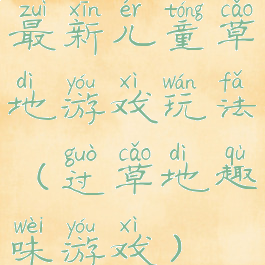 zuì xīn ér tóng cǎo
最新儿童草
dì yóu xì wán fǎ
地游戏玩法
guò cǎo dì qù
（过草地趣
wèi yóu xì
味游戏）